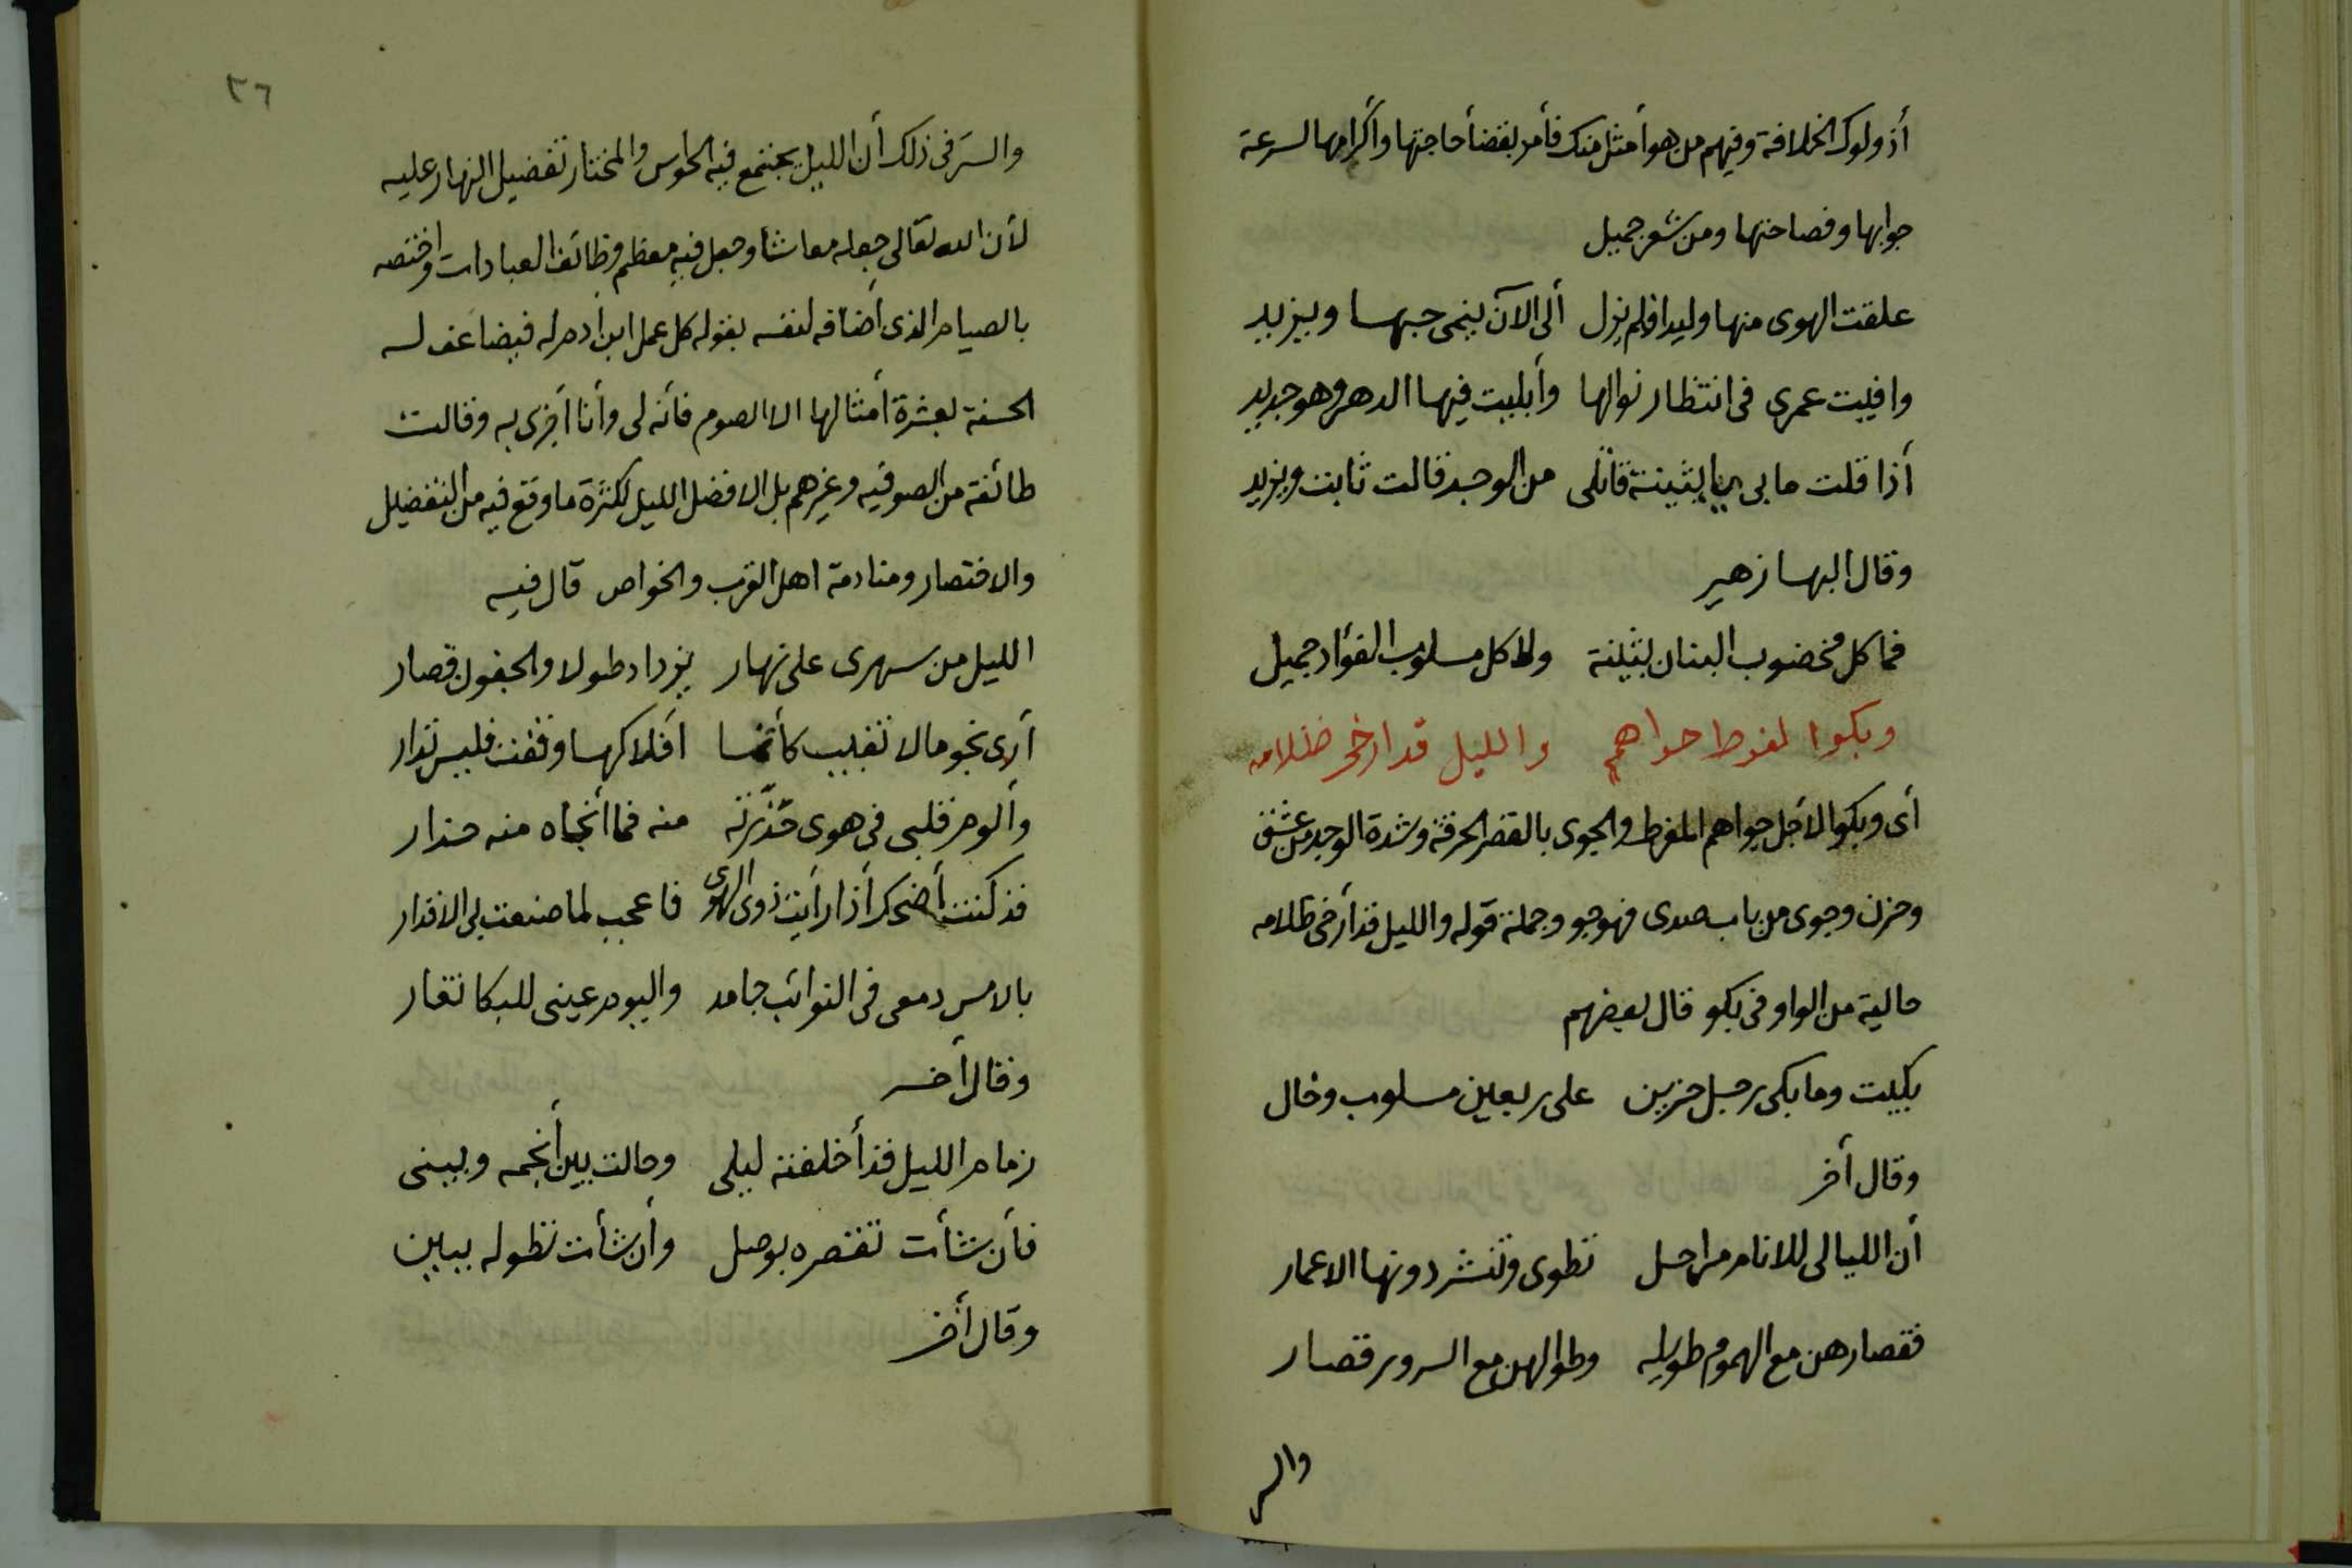 أذ ولوك الخلافة وفيهم من هو أمثل منك فأمر بقضأ حاجتها وأكرامها لسرعة
جوابها وفصاحتها ومن شعر جميل
علقت الهوى منها وليدا فلم يزل ألى الآن ينمى حبها ويزيد
وافنيت عمرى فى انتظار نوالها وأبليت فيها الدهر وهو جديد
أذا قلت ما بى يا بثينة قاتلى من الوجد قالت ثابت ويزيد
وقال البها زهير
فما كل مخضوب البنان بثينة ولا كل مسلوب الفؤاد جميل
وبكوا لفرط جواهم والليل قد ارخى ظلامه
أى وبكوا لأجل جواهم المفرط والجوى بالقصر الحرقة وشدة الوجد من عشق
وحزن وجوى من باب صدى فهو جو وجملة قوله والليل قد أرخى ظلامه
حالية من الواو فى بكو قال بعضهم
بكيت وما بكى رجل حزين على ربعين مسلوب وخال
وقال أخر
أن الليالى للانام مراحل تطوى وتنشر دونها الاعمار
فقصارهن مع الهموم طويله وطوالهن مع السرور قصار
والسر
٣٦
والسر فى ذلك أن الليل يجتمع فيه الحواس والمختار تفضيل النهار عليه
لأن الله تعالى جعله معاشا وجعل فيه معظم وظائف العبادات واختصه
بالصيام الذى أضافه لنفسه بقوله كل عمل ابن أدم له فيضاعف له
الحسنة بعشرة أمثالها الا الصوم فأنه لى وأنا أجزى به وقالت
طائفة من الصوفيه وغيرهم بل الافضل الليل لكثرة ما وقع فيه من التفضيل
والاقتصار ومنادمة اهل القرب والخواص قال فيه
الليل من سهرى على نهار يزداد طولا والجفون قصار
أرى نجوما لا تغيب كأنها أفلاكها وقفت فليس تدار
وألوم قلبى فى هوى حذرته منه فما أنجاه منه حذار
قد كنت أضحك أذا رأيت ذوى الهوى فاعجب لما صنعت بى الاقدار
بالامس دمعى فى النوائب جامد واليوم عينى للبكا تعار
وقال أخر
زمام الليل قد أخلفته ليلى وحالت بين أنجمه وبينى
فأن شأت تقصره بوصل وأن شأت تطوله ببين
وقال أخر